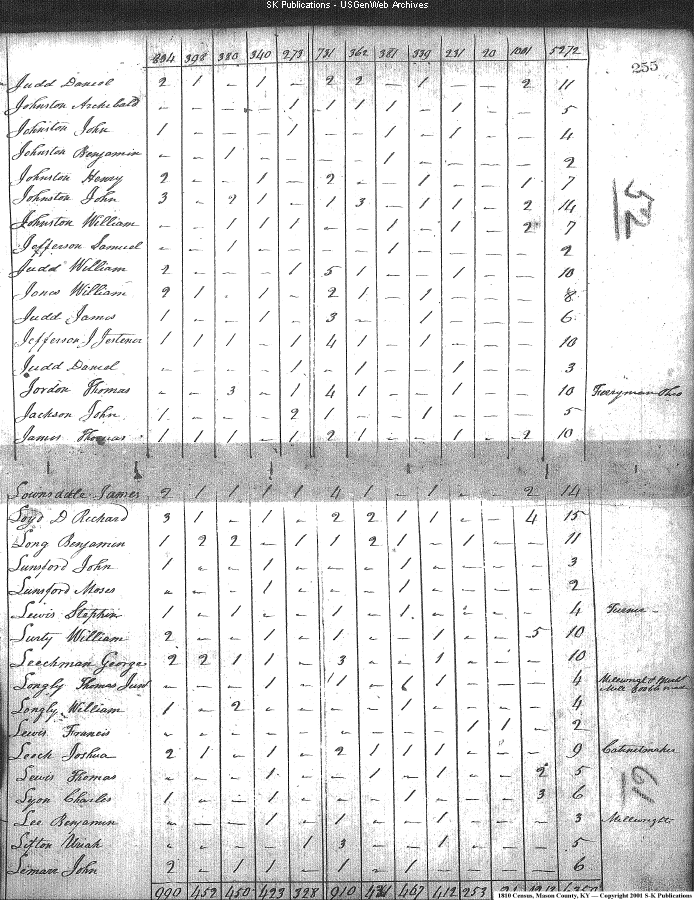 SK Publications - USGenWeb Archives
894 398 380 340 273 731 362 381 339 231 20 1091 5272
255
Judd Daniel 2 1 - 1 - 2 2 - 1 - - 2 11
Johnston Archebald - - - - 1 1 1 1 - 1 - - 5
Johnston John 1 - - - 1 - - 1 - 1 - - 4
Johnston Benjamin - - 1 - - - - 1 - - - - 2
Johnston Henry 2 - - 1 - 2 - - 1 - - 1 7
Johnston John 3 - 2 1 - 1 3 - 1 1 - 2 14
52
Johnston William - - 1 1 1 - - 1 - 1 - 2 7
Jefferson Samuel - - 1 - - - - 1 - - - - 2
Judd William 2 - - - 1 5 1 - - 1 - - 10
Jones William 2 1 - 1 - 2 1 - 1 - - - 8
Judd James 1 - - 1 - 3 - - 1 - - - 6
Jefferson J 1 1 1 - 1 4 1 - 1 - - - 10
Judd Daniel - - - - 1 - 1 - - 1 - - 3
Jordon Thomas - - 3 - 1 4 1 - - 1 - - 10 Ferryman Ohio
Jackson John 1 - - - 2 1 - - 1 - - - 5
James Thomas 1 1 1 - 1 2 1 - - 1 - 2 10
Lownsdale James 2 1 1 1 1 4 1 - 1 - - 2 14
Loyd D Richard 3 1 - 1 - 2 2 1 1 - - 4 15
Long Benjamin 1 2 2 - 1 1 2 1 - 1 - - 11
Lunsford John 1 - - 1 - - - 1 - - - - 3
Lunsford Moses - - - 1 - - - 1 - - - - 2
Lewis Stephen 1 - - 1 - 1 - 1 - - - - 4 Turner -
Surly William 2 - - 1 - 1 - - 1 - - 5 10
Leechman George 2 2 1 1 - 3 - - 1 - - - 10
Longly Thomas Junr - - - 1 - 1 - 1 - - - 4 Millwright &
Longly William 1 - 2 - - - - 1 - - - - 4
Lewis Francis - - - - - - - - - 1 1 - 2
Leech Joshua 2 1 - 1 - 2 1 1 1 - - - 9 Cabinetmaker
Lewis Thomas - - - 1 - - 1 - 1 - - 2 5
61
Lyon Charles 1 - - 1 - - - 1 - - - 3 6
Lee Benjamin - - - 1 - 1 - - 1 - - - 3 Millwright
Lifton Uriah - - - - 1 3 - - - 1 - - 5
Lemarr John 2 - 1 1 - 1 - 1 - - - - 6
990 452 450 423 328 910 467 412 253
1810 Census, Mason County, KY — Copyright 2001 S-K Publications